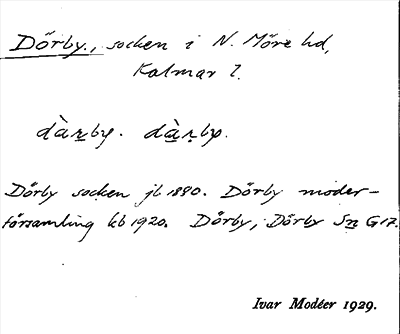 Dörby., socken i N. Möre hd,
Kalmar l.
dàr̲by. dà̲ṛby.
Dörby socken jb 1880. Dörby moder-
församling kb 1920. Dörby, Dörby Sn G17.
Ivar Modéer 1929.